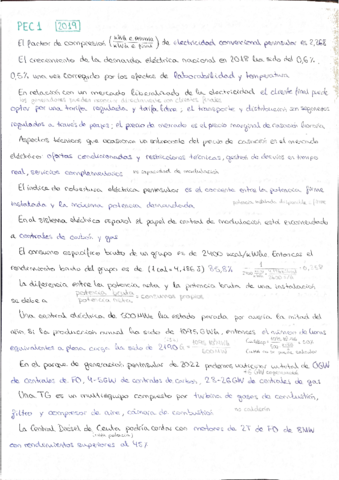 PEC 1 2019
El factor de conversión (kWh e. primaria / kWh e. final) de electricidad convencional peninsular es 2,368
El crecimiento de la demanda eléctrica nacional en 2018 ha sido del 0,6%,
0,5% una vez corregido por los efectos de laboralidad y temperatura
En relación con un mercado liberalizado de la electricidad el cliente final puede
optar por una tarifa regulada y tarifa libre, el transporte y distribución son negocios
regulados a través de peajes, el precio de mercado es el precio marginal de casación horaria
Aspectos técnicos que ocasionan un sobrecoste del precio de casación es el mercado
eléctrico ofertas condicionadas y restricciones técnicas, gastos de desvíos en tiempo
real, servicios complementarios
El índice de cobertura eléctrica peninsular es el cociente entre la potencia firme
instalada y la máxima potencia demandada
En el sistema eléctrico español el papel de central de modulación está encomendado
a centrales de carbón y gas
El consumo específico bruto de un grupo es de 2400 kcal/kWhe. Entonces el
rendimiento bruto del grupo es de (1 cal = 4,186 J) 35,8%
La diferencia entre la potencia neta y la potencia bruta de una instalación
se debe a potencia bruta potencia neta = consumos propios
Una central eléctrica de 500 MWe ha estado parada por avería. En mitad del
año si la producción anual ha sido de 1095 GWh, entonces el número de horas
equivalentes a plena carga ha sido de 2190
En el parque de generación peninsular de 2022 podremos un total de 0 GW
de centrales de FO, 4-5 GW de centrales de carbón, 25-26 GW de centrales de gas
Una TG es un multiequipo compuesto por turbina de gases de combustión,
filtro y compresor de aire, cámara de combustión
La Central Diésel de Ceuta podría contar con motores de 2T de FO de 8 MW
con rendimientos superiores al 45%